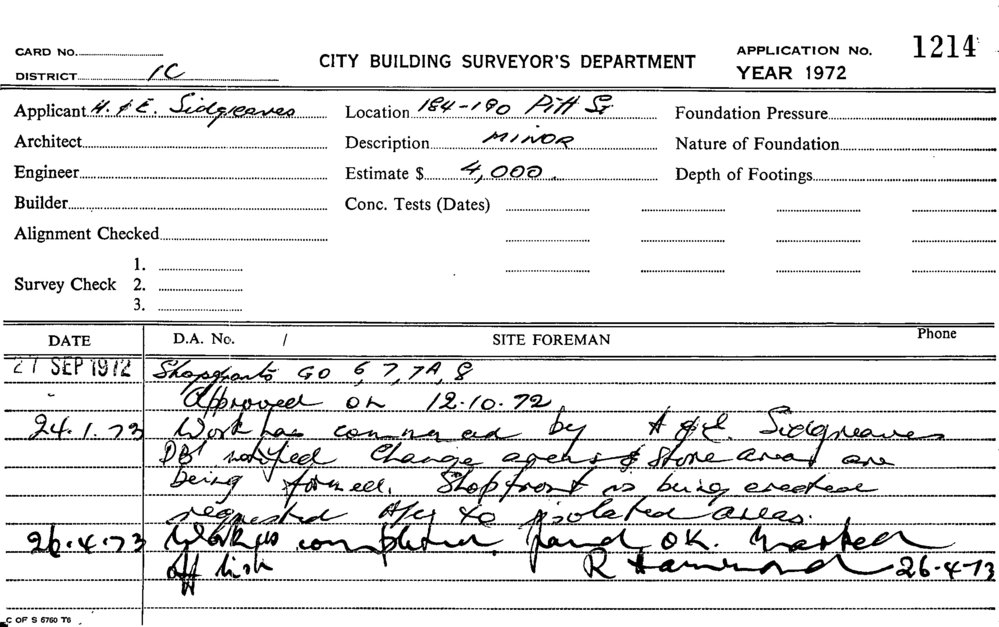 CARD No.
DISTRICT 1C
CITY BUILDING SURVEYOR'S DEPARTMENT
APPLICATION No. 1214
YEAR 1972
Applicant H. & E. Sidgreaves
Location 184-190 Pitt St
Foundation Pressure
Architect
Description MINOR
Nature of Foundation
Engineer
Estimate $ 4,000.
Depth of Footings
Builder
Conc. Tests (Dates)
Alignment Checked
Survey Check
1.
2.
3.
DATE
D.A. No. /
SITE FOREMAN
Phone
27 SEP 1972
Shopfronts GO 6, 7, 7A, 8
Approved on 12.10.72
24.1.73 Work has commenced by H & E. Sidgreaves
DBI notified Change & Store areas are
being formed. Shopfront is being erected
requested to isolated areas.
26.4.73 Work is completed, found OK. Marked
off list R Hammond 26.4.73
C OF S 5760 T6